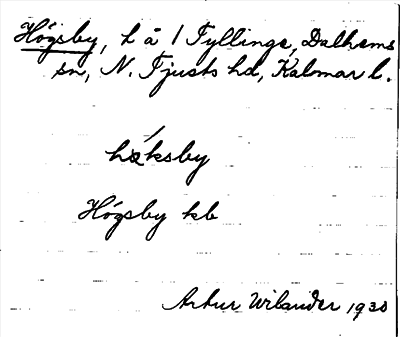 Högsby, t å 1 Tyllinge, Dalhems
sn, N. Tjusts hd, Kalmar l.
hö́ksby
Högsby kb
Artur Wilander 1930